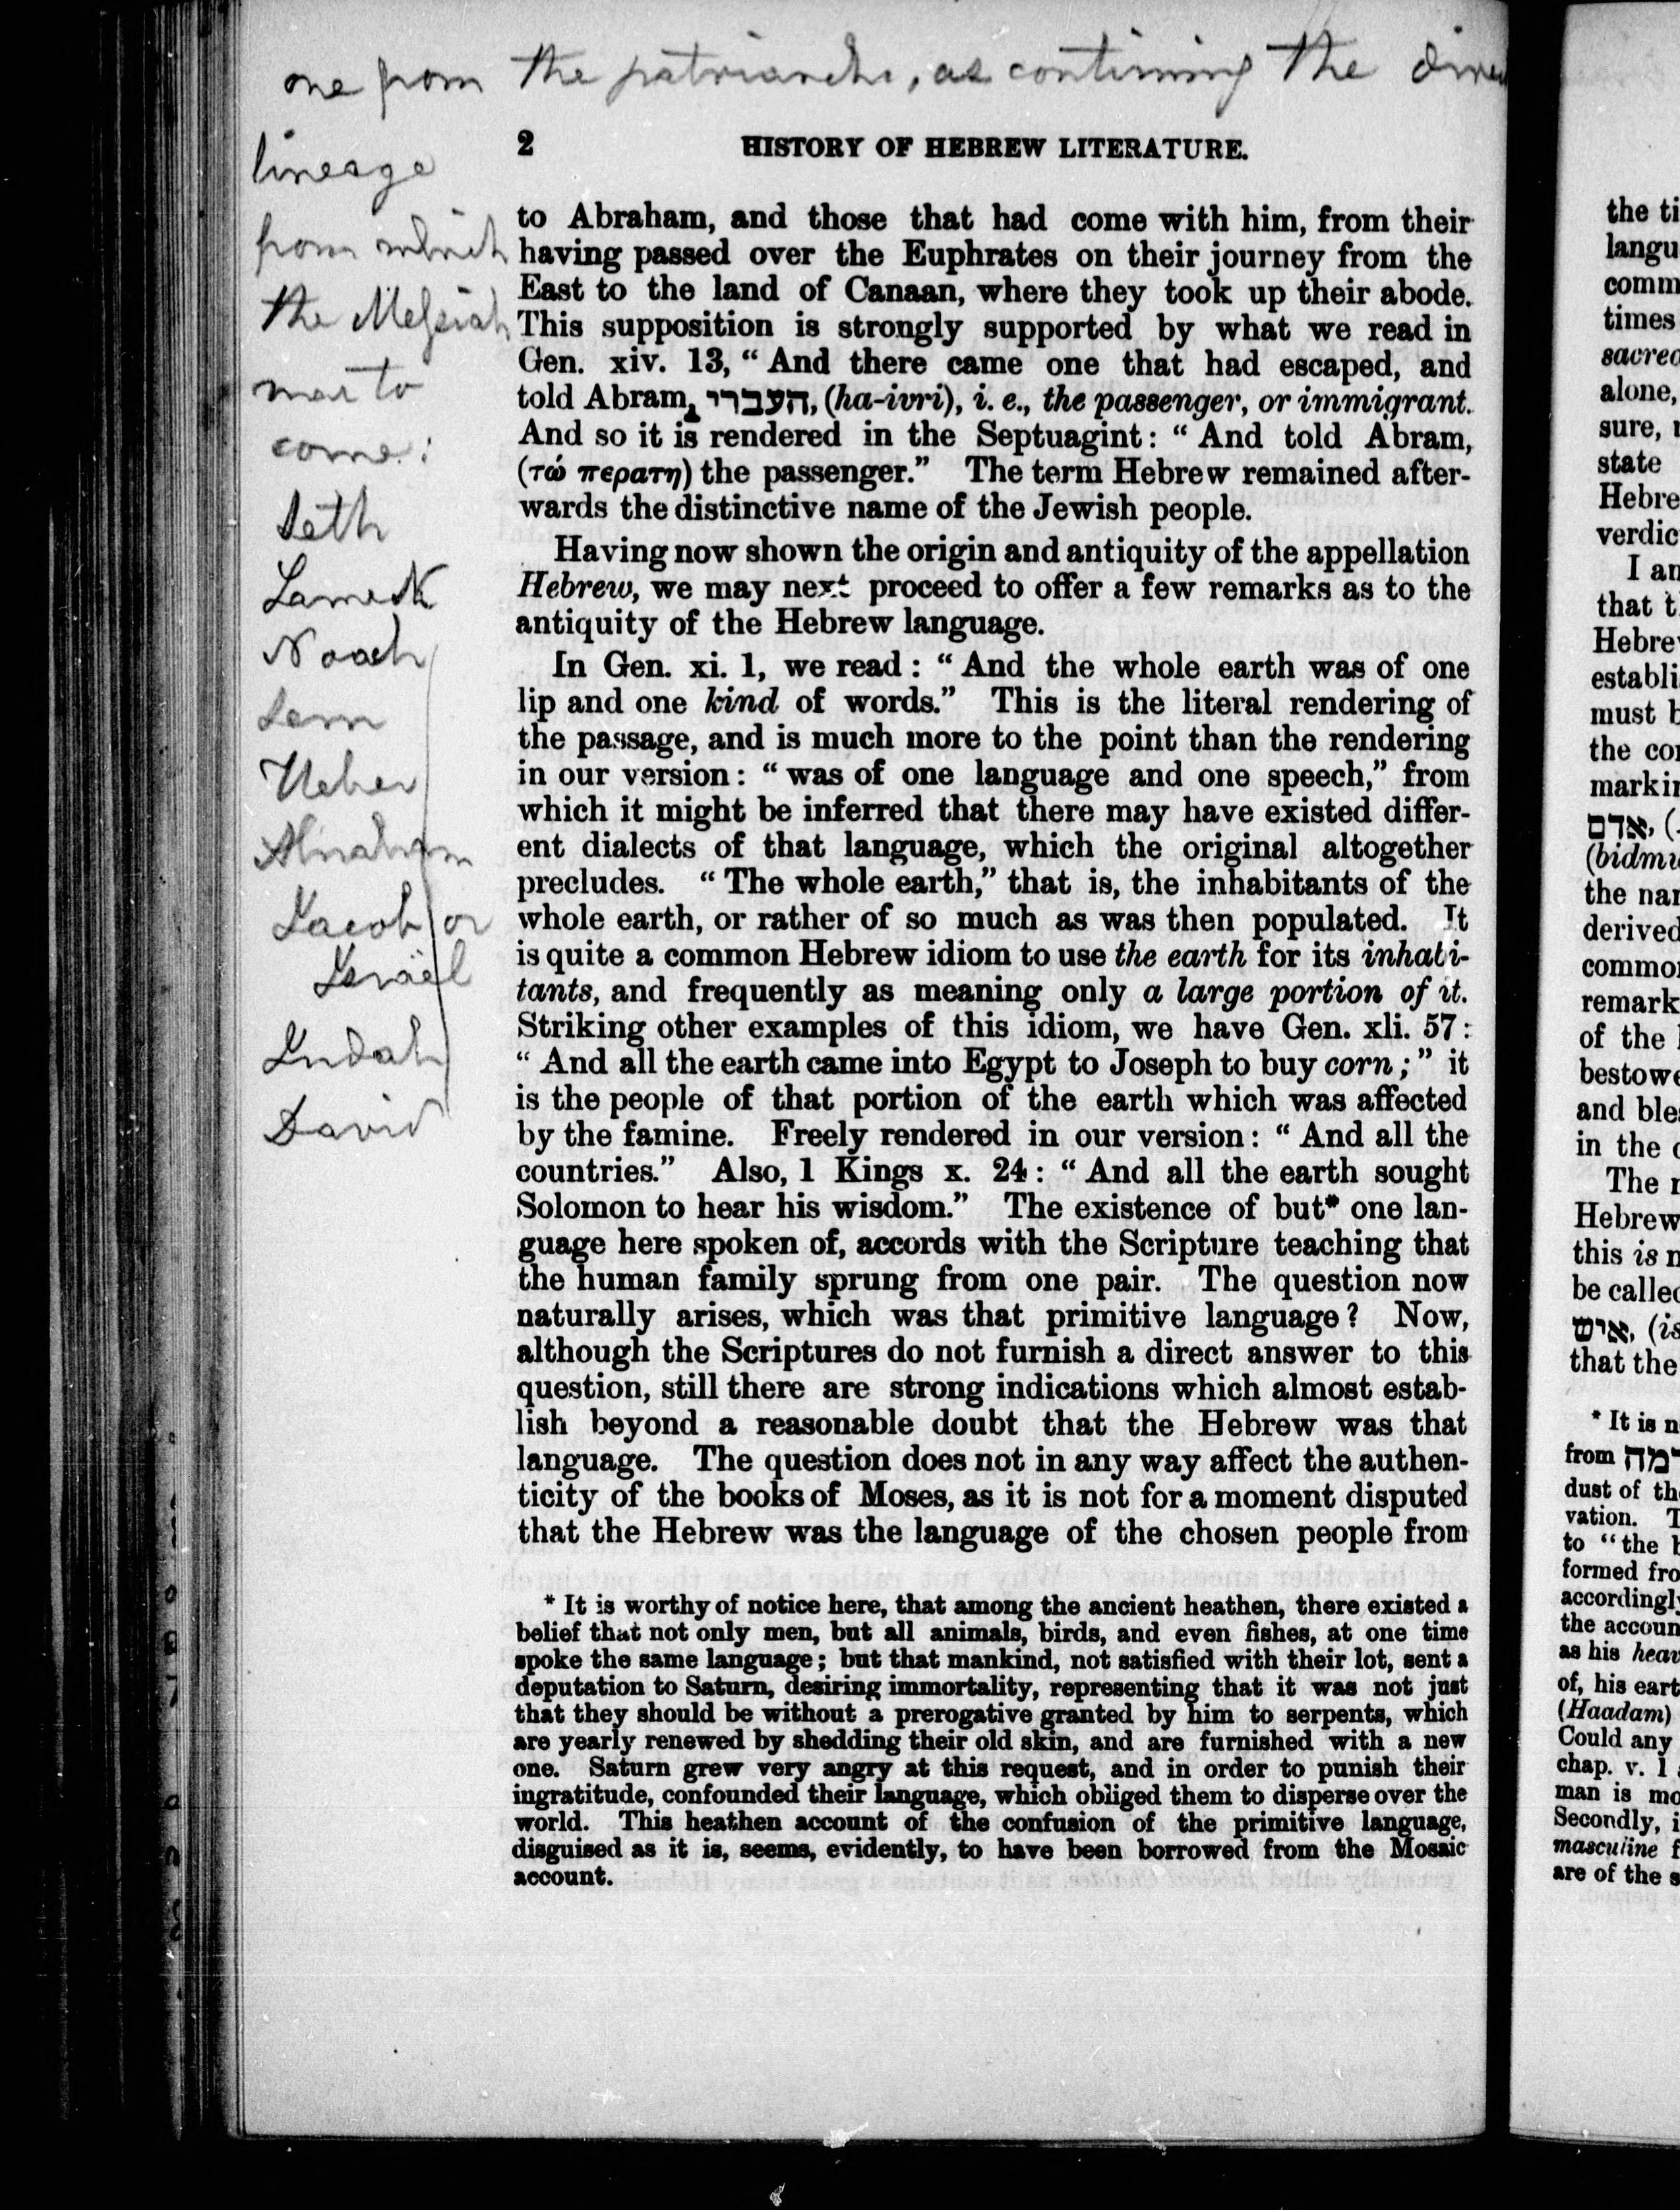 one from the patriarchs, as continuing the direct
lineage
from which
the Messiah
was to
come:
Seth
Lamech
Noach
Sem
Heber
Abraham
Jacob or
Israël
Judah
David
2 HISTORY OF HEBREW LITERATURE.
to Abraham, and those that had come with him, from their
having passed over the Euphrates on their journey from the
East to the land of Canaan, where they took up their abode.
This supposition is strongly supported by what we read in
Gen. xiv. 13, “ And there came one that had escaped, and
told Abram, העברי, (ha-ivri), i. e., the passenger, or immigrant.
And so it is rendered in the Septuagint: “ And told Abram,
(τώ περατη) the passenger.” The term Hebrew remained after-
wards the distinctive name of the Jewish people.
Having now shown the origin and antiquity of the appellation
Hebrew, we may next proceed to offer a few remarks as to the
antiquity of the Hebrew language.
In Gen. xi. 1, we read : “ And the whole earth was of one
lip and one kind of words.” This is the literal rendering of
the passage, and is much more to the point than the rendering
in our version : “ was of one language and one speech,” from
which it might be inferred that there may have existed differ-
ent dialects of that language, which the original altogether
precludes. “ The whole earth,” that is, the inhabitants of the
whole earth, or rather of so much as was then populated. It
is quite a common Hebrew idiom to use the earth for its inhabi-
tants, and frequently as meaning only a large portion of it.
Striking other examples of this idiom, we have Gen. xli. 57 :
“ And all the earth came into Egypt to Joseph to buy corn ; ” it
is the people of that portion of the earth which was affected
by the famine. Freely rendered in our version : “ And all the
countries.” Also, 1 Kings x. 24 : “ And all the earth sought
Solomon to hear his wisdom.” The existence of but* one lan-
guage here spoken of, accords with the Scripture teaching that
the human family sprung from one pair. The question now
naturally arises, which was that primitive language ? Now,
although the Scriptures do not furnish a direct answer to this
question, still there are strong indications which almost estab-
lish beyond a reasonable doubt that the Hebrew was that
language. The question does not in any way affect the authen-
ticity of the books of Moses, as it is not for a moment disputed
that the Hebrew was the language of the chosen people from
* It is worthy of notice here, that among the ancient heathen, there existed a
belief that not only men, but all animals, birds, and even fishes, at one time
spoke the same language ; but that mankind, not satisfied with their lot, sent a
deputation to Saturn, desiring immortality, representing that it was not just
that they should be without a prerogative granted by him to serpents, which
are yearly renewed by shedding their old skin, and are furnished with a new
one. Saturn grew very angry at this request, and in order to punish their
ingratitude, confounded their language, which obliged them to disperse over the
world. This heathen account of the confusion of the primitive language,
disguised as it is, seems, evidently, to have been borrowed from the Mosaic
account.
the ti
langu
comm
times
sacred
alone,
sure,
state
Hebre
verdic
I am
that t
Hebre
establi
must b
the co
markin
אדם, (
(bidmu
the nam
derived
common
remark
of the
bestowe
and bles
in the
The
Hebrew
this is n
be called
איש, (is
that the
* It is n
from
dust of th
vation. T
to “ the h
formed fro
accordingly
the accoun
as his heav
of, his eart
(Haadam)
Could any
chap. v. 1
man is mo
Secondly, i
masculine f
are of the s